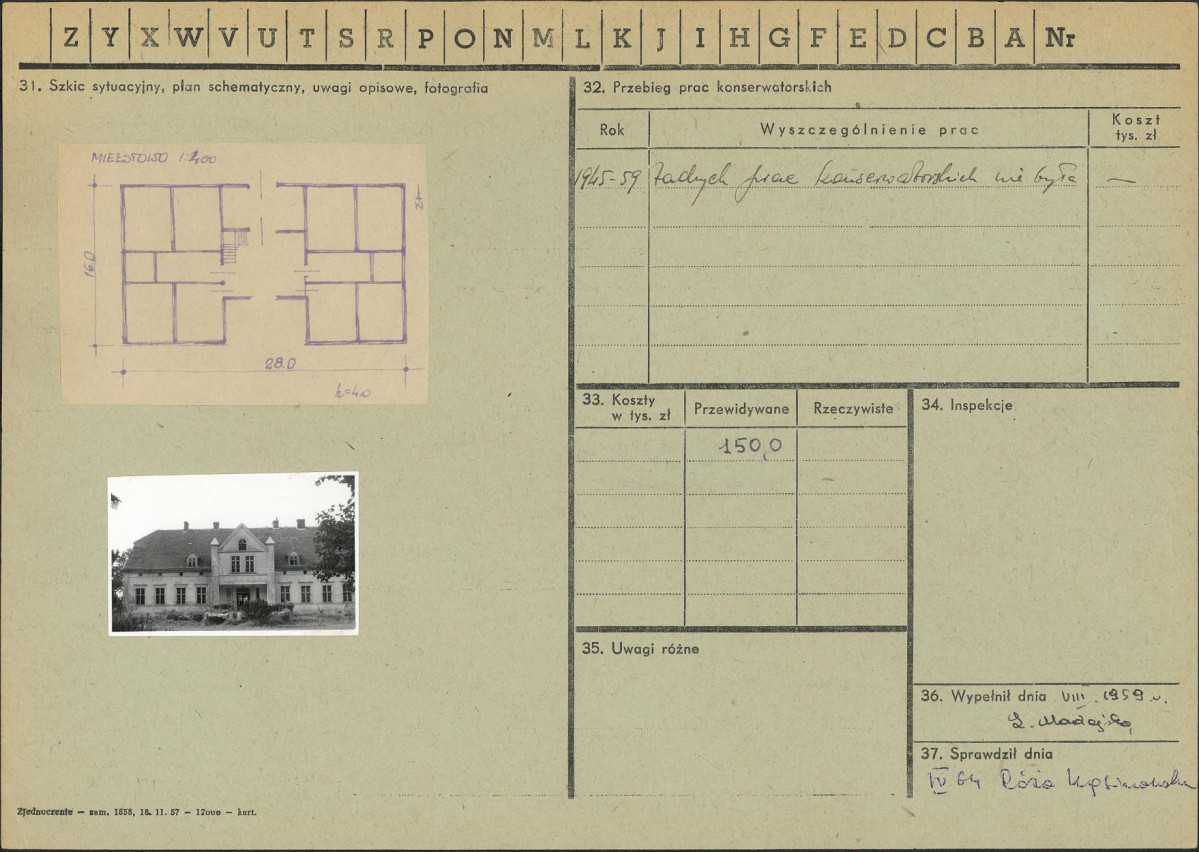 Z Y X W V U T S R P O N M L K J I H G F E D C B A Nr
31. Szkic sytuacyjny, plan schematyczny, uwagi opisowe, fotografia
MIEŁSTOWO 1:400
N
16.0
28.0
h=4.0
32. Przebieg prac konserwatorskich
Rok Wyszczególnienie prac Koszt tys. zł
1945-59 żadnych prac konserwatorskich nie było —
33. Koszty w tys. zł Przewidywane Rzeczywiste
150,0
34. Inspekcje
35. Uwagi różne
36. Wypełnił dnia VIII. 1959 r.
37. Sprawdził dnia
IV 64 Róża
Zjednoczenie — zam. 1858, 18. 11. 57 — 12000 — kart.